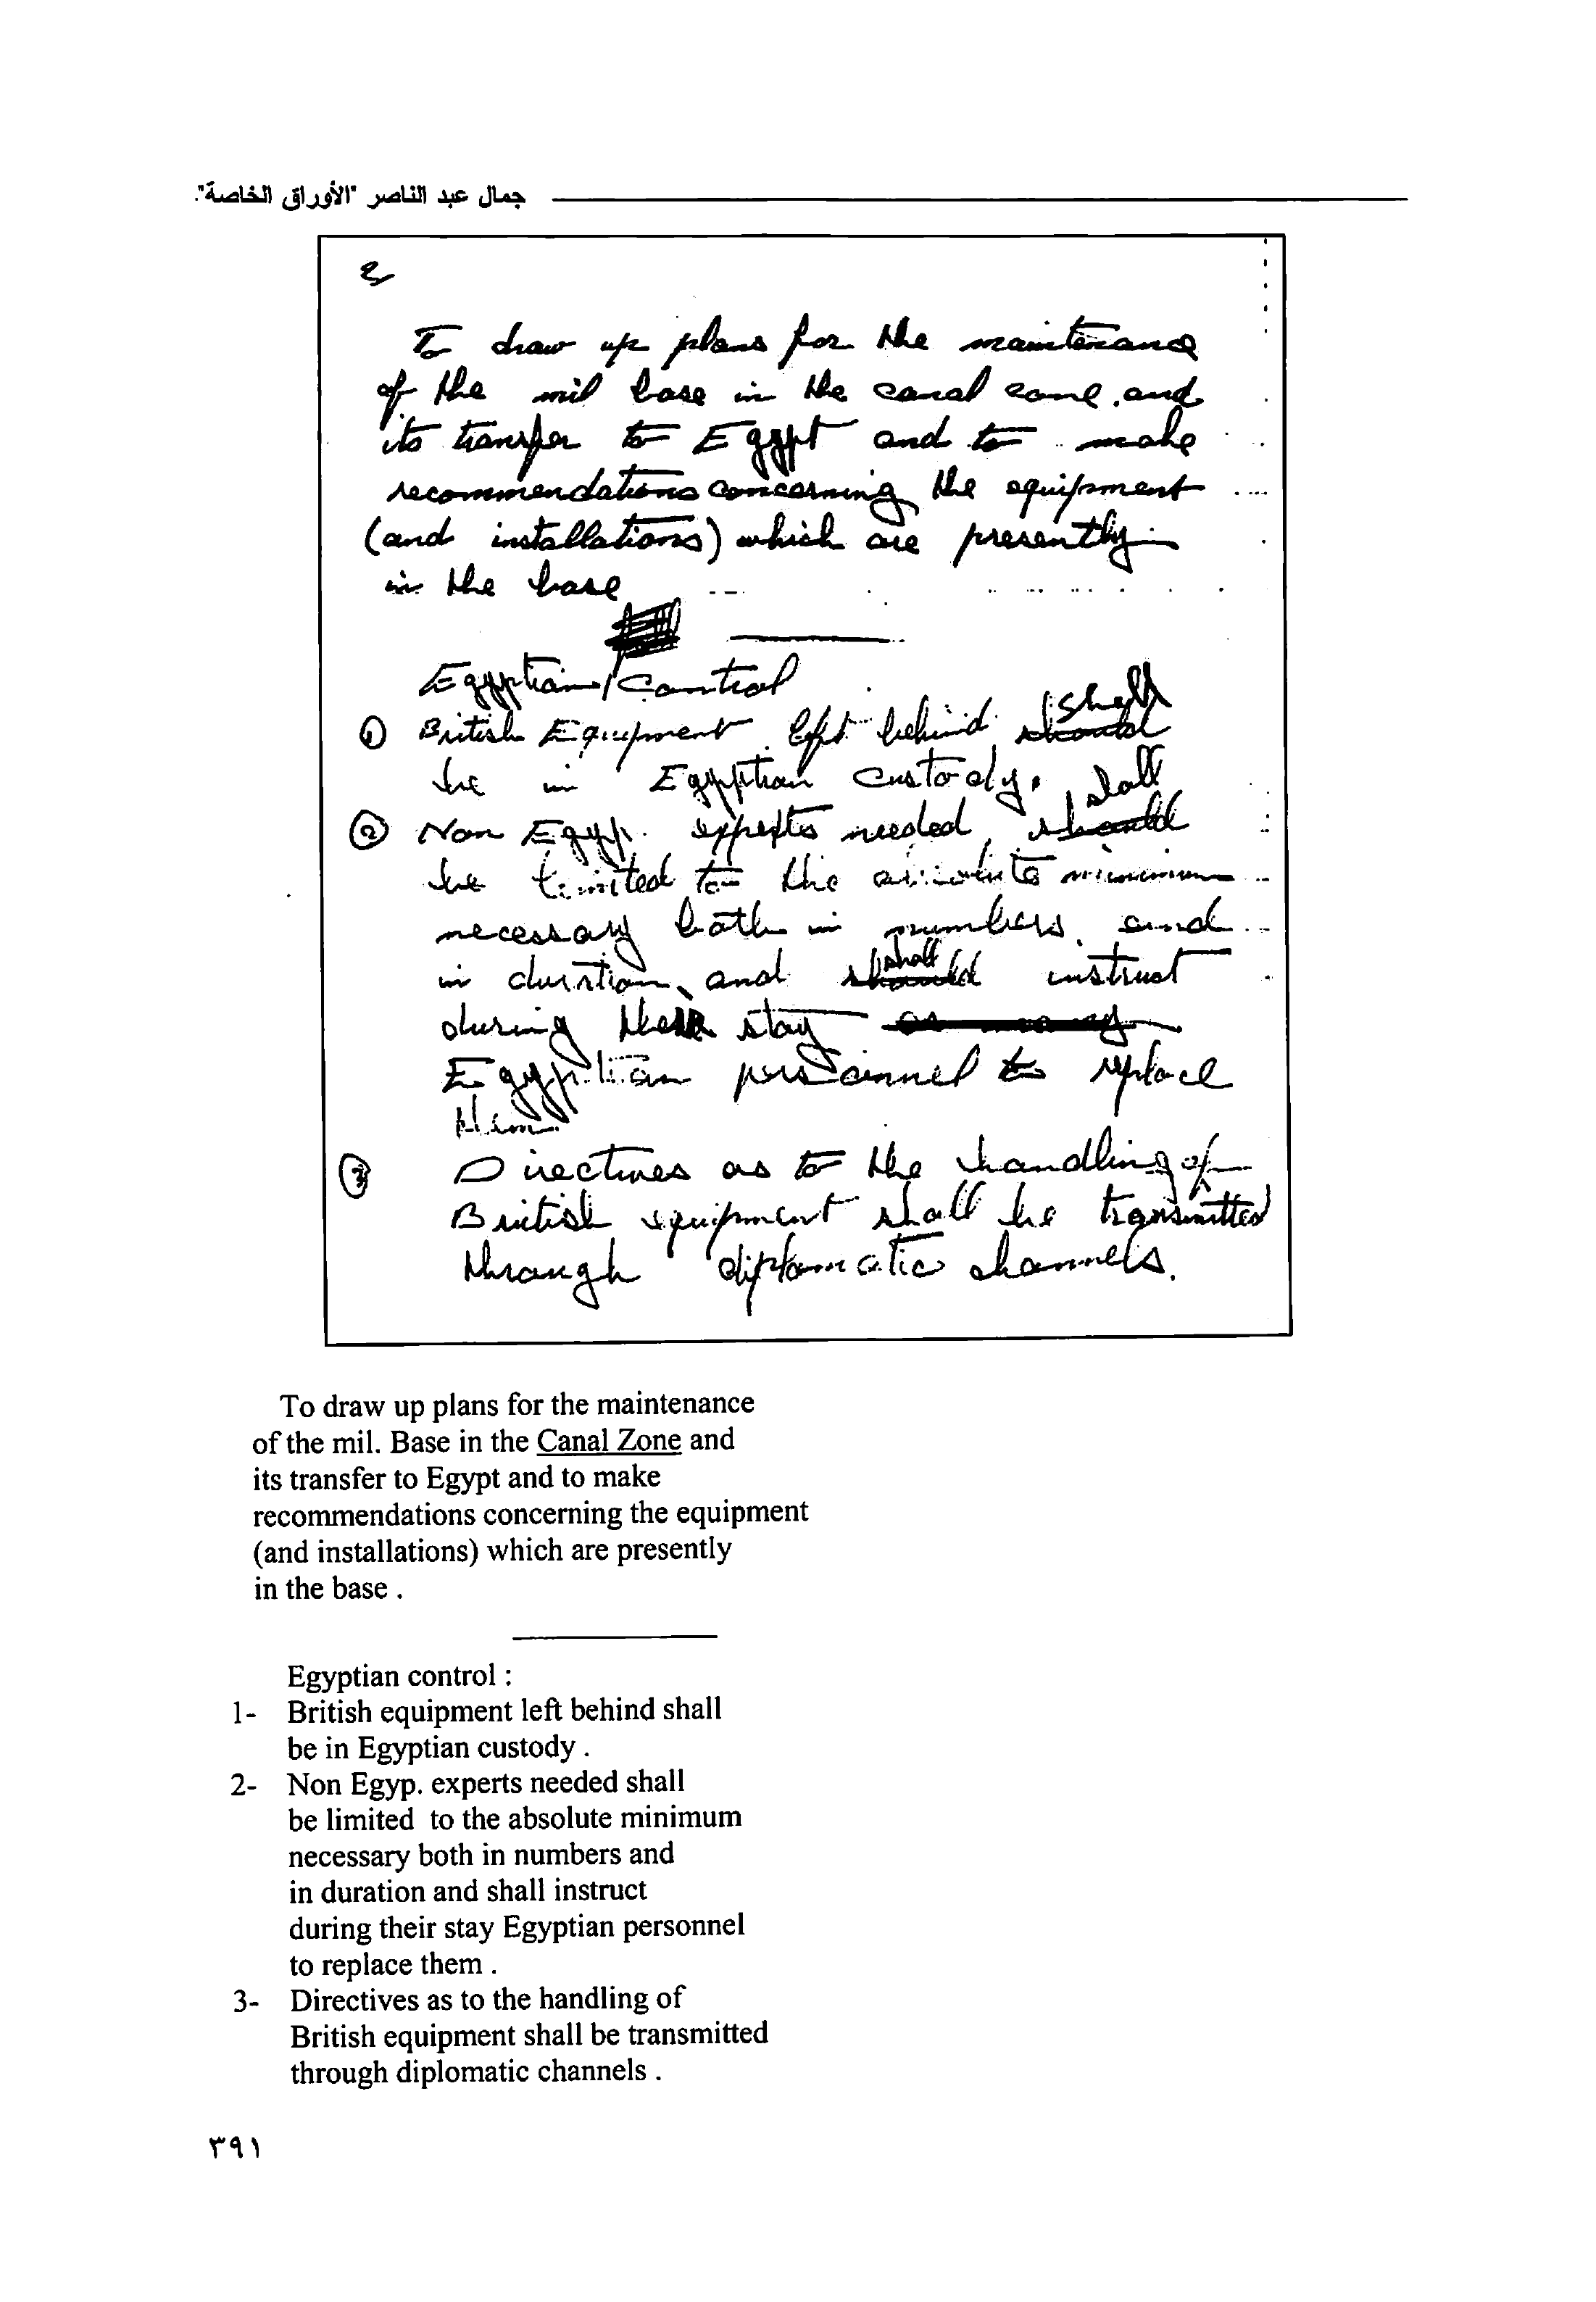 جمال عبد الناصر "الأوراق الخاصة".
To draw up plans for the maintenance
of the mil base in the canal zone and
its transfer to Egypt and to make
recommendations concerning the equipment
(and installations) which are presently
in the base
Egyptian / Control
① British Equipment left behind shall should
be in Egyptian custody.
② Non Egyp. experts needed shall should
be limited to the absolute minimum
necessary both in numbers and
in duration, and shall should instruct
during their stay as many
Egyptian personnel to replace
them.
③ Directives as to the handling of
British equipment shall be transmitted
through diplomatic channels.
To draw up plans for the maintenance
of the mil. Base in the Canal Zone and
its transfer to Egypt and to make
recommendations concerning the equipment
(and installations) which are presently
in the base .
Egyptian control :
1- British equipment left behind shall
be in Egyptian custody .
2- Non Egyp. experts needed shall
be limited to the absolute minimum
necessary both in numbers and
in duration and shall instruct
during their stay Egyptian personnel
to replace them .
3- Directives as to the handling of
British equipment shall be transmitted
through diplomatic channels .
٣٩١